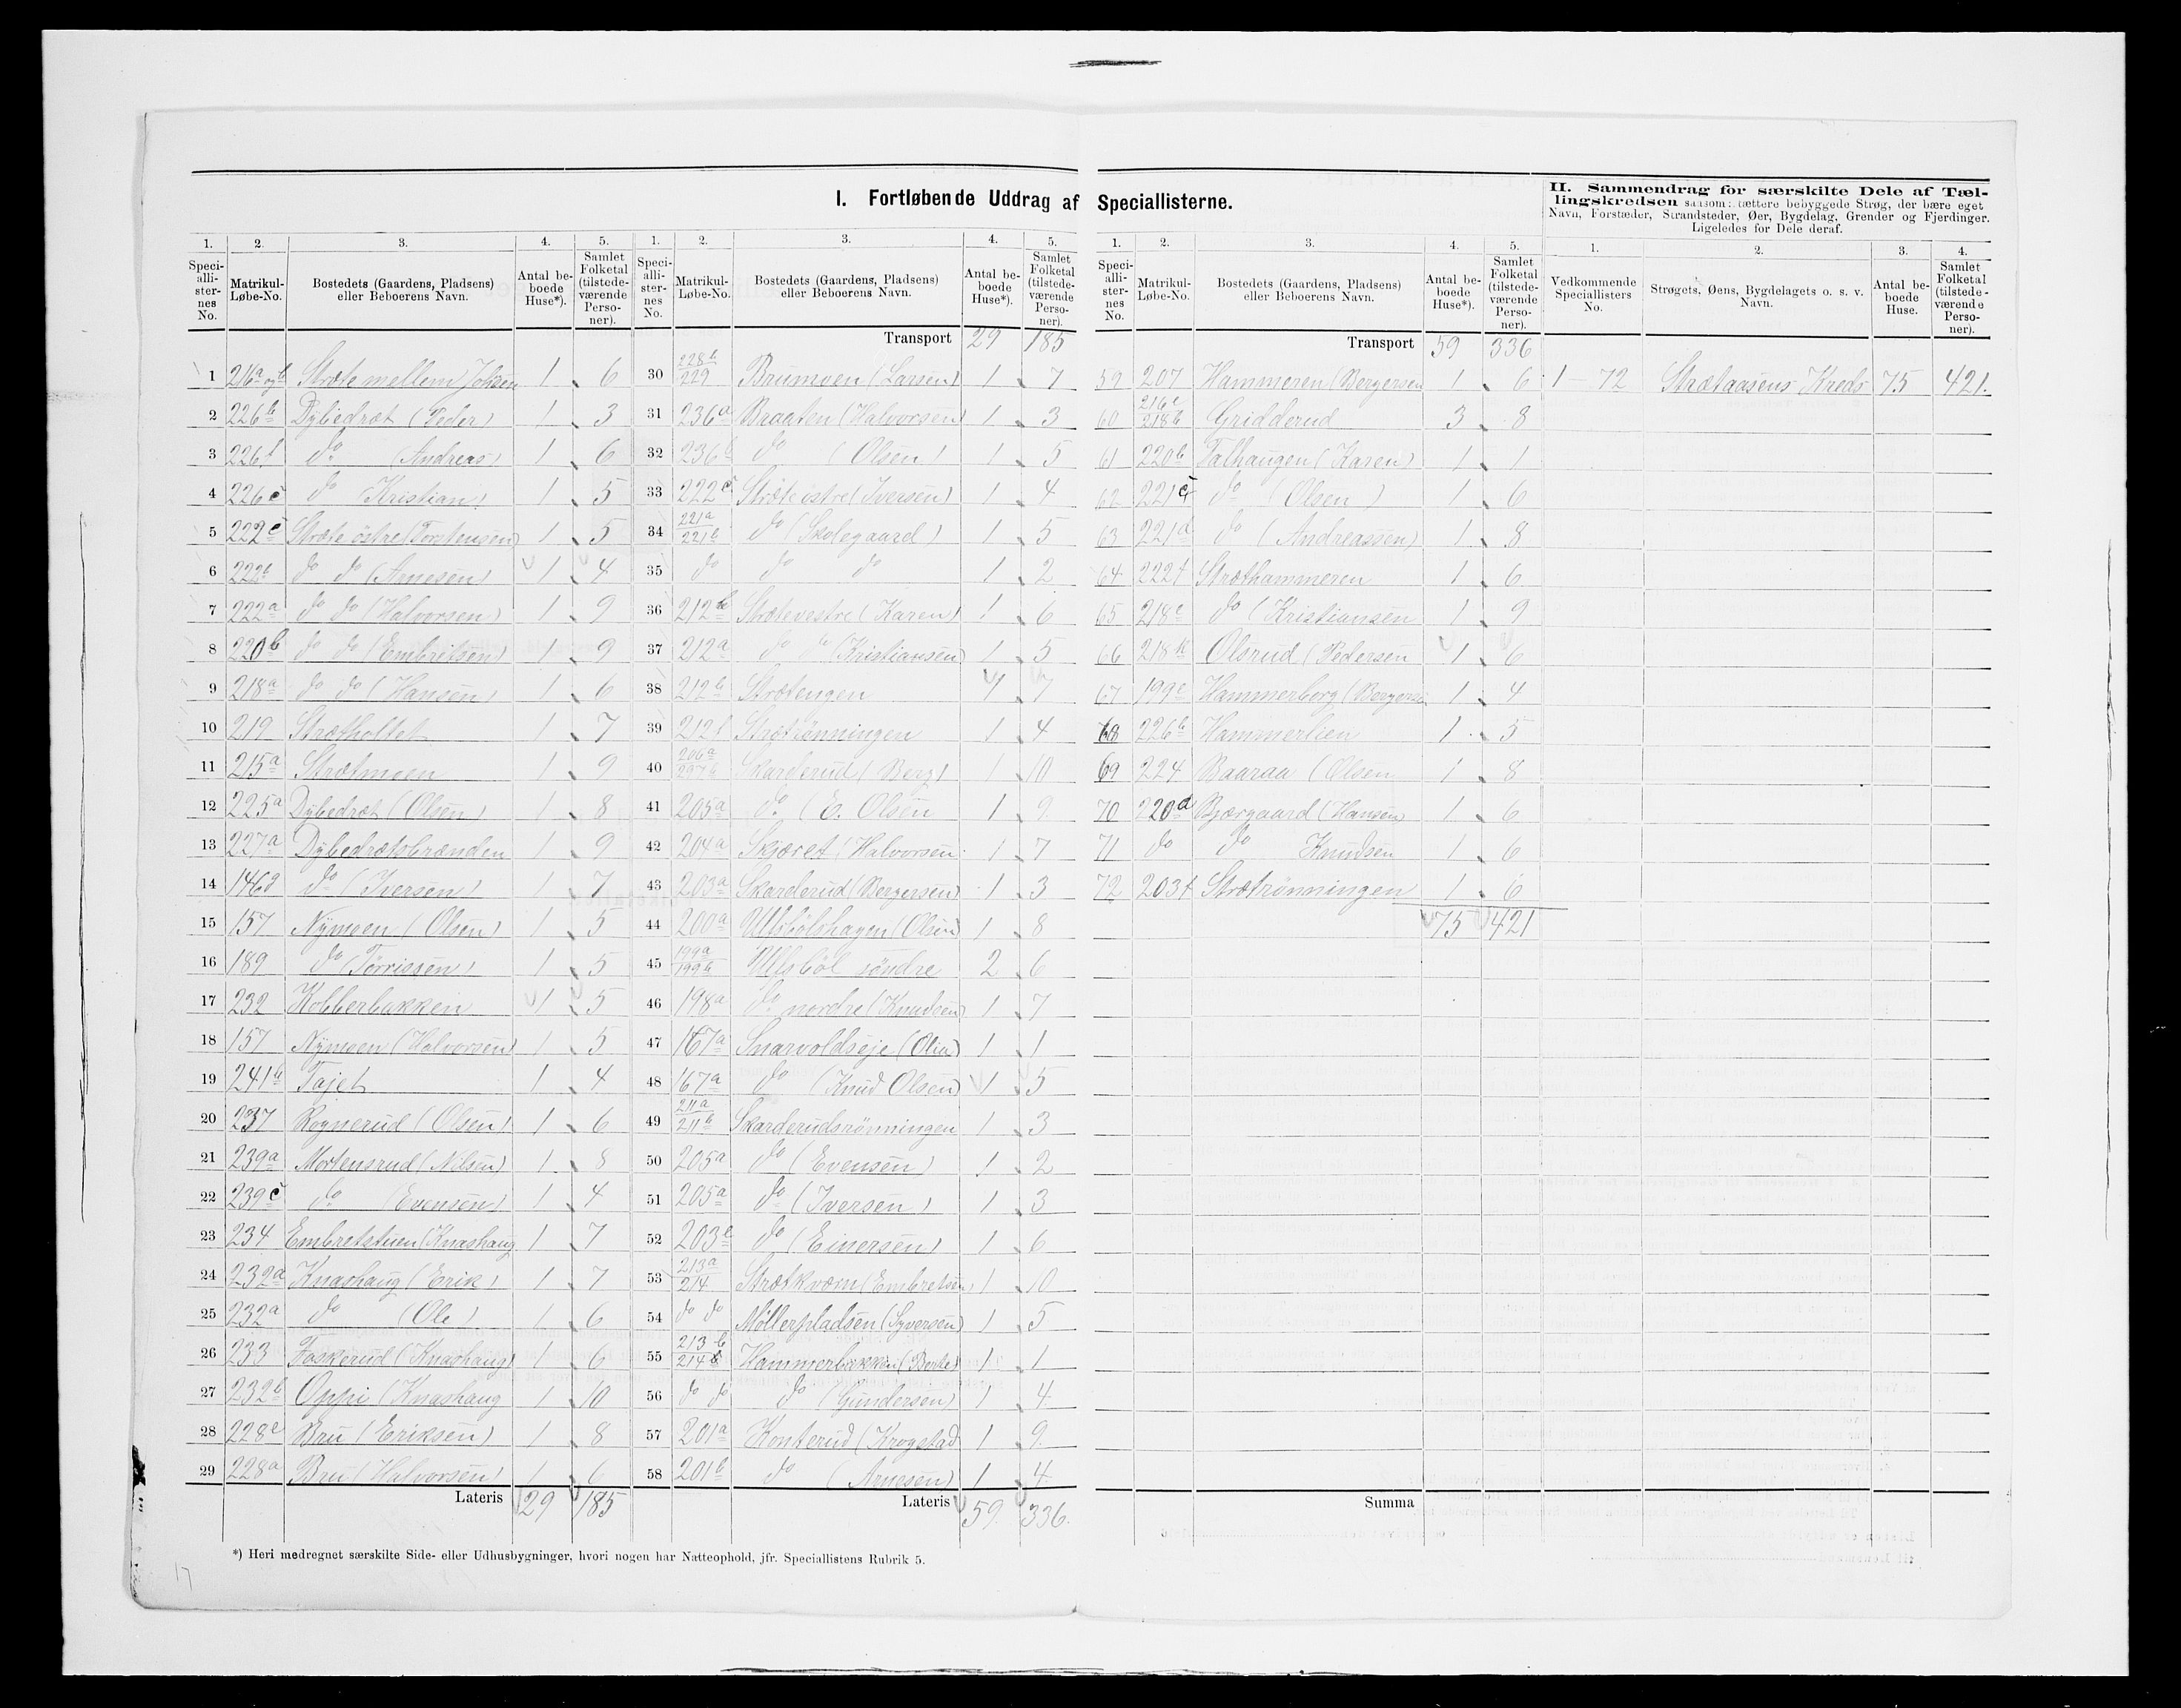 I. Fortløbende Uddrag af Speciallisterne.
II. Sammendrag for særskilte Dele af Tæl-
lingskredsen saasom: tættere bebyggede Strøg, der bære eget
Navn, Forstæder, Strandsteder, Øer, Bygdelag, Grender og Fjerdinger.
Ligeledes for Dele deraf.
1. 2. 3. 4. 5.
Speci-alli-ster-nes No. Matrikul-Løbe-No. Bostedets (Gaardens, Pladsens) eller Beboerens Navn. Antal be-boede Huse*). Samlet Folketal (tilstede-værende Perso-ner).
1 216a og b Stræte mellem Johsen 1 6
2 226b Dybedræt (Peder) 1 3
3 226f do (Andreas) 1 6
4 226c do (Kristian) 1 5
5 222c Stræte östre (Torstensen) 1 5
6 222b do do (Arnesen) 1 4
7 222a do do (Halvorsen) 1 9
8 220b do do (Embritsen) 1 9
9 218a do do (Hansen) 1 6
10 219 Strætholtet 1 7
11 215a Strætmoen 1 9
12 225a Dybedræt (Olsen) 1 8
13 227a Dybedrætsbrænden 1 9
14 146d do (Iversen) 1 7
15 157 Nymoen (Olsen) 1 5
16 189 do (Torrissen) 1 5
17 232 Kobberbakken 1 5
18 157 Nymoen (Halvorsen) 1 5
19 241b Tajet 1 4
20 237 Rognerud (Olsen) 1 6
21 239a Mortensrud (Nilsen) 1 8
22 239c do (Evensen) 1 4
23 234 Embretstuen (Knashaug 1 7
24 232a Knashaug (Erik) 1 7
25 232a do (Ole) 1 6
26 233 Faskerud (Knashaug) 1 6
27 232b Oppi (Knashaug 1 10
28 228c Bru (Eriksen) 1 8
29 228a Bru (Halvorsen) 1 6
Lateris 29 185
1. 2. 3. 4. 5.
Speci-alli-ster-nes No. Matrikul-Løbe-No. Bostedets (Gaardens, Pladsens) eller Beboerens Navn. Antal be-boede Huse*). Samlet Folketal (tilstede-værende Perso-ner).
Transport 29 185
30 228b 229 Brumoen (Larsen) 1 7
31 236a Braaten (Halvorsen) 1 3
32 236b do (Olsen) 1 5
33 222c Stræte östre (Iversen) 1 4
34 221a 221b do (Skolegaard) 1 5
35 do do do 1 2
36 212b Strætevestre (Karen) 1 6
37 212a do do (Kristiansen) 1 5
38 212b Strætengen 1 7
39 212f Strætrönningen 1 4
40 206a 207b Skarderud (Berg) 1 10
41 205a do (E. Olsen 1 9
42 204a Skjæret (Halvorsen 1 7
43 203a Skarderud (Bergersen) 1 3
44 200a Ulsbölshagen (Olsen) 1 8
45 199a 199b Ulsböl söndre 2 6
46 198a do nordre (Knudsen) 1 7
47 167a Snarvoldseje (Olia) 1 1
48 167a do (Knud Olsen) 1 5
49 211a 211b Skarderudsrönningen 1 3
50 205a do (Evensen) 1 2
51 205a do (Iversen) 1 3
52 203e do (Einersen) 1 6
53 213a 214 Strætkværn (Embretsen) 1 10
54 do do Möllerpladsen (Syversen) 1 5
55 213b 214 Hammerbakken (Berte) 1 1
56 do do do (Gundersen) 1 4
57 201a Konterud (Krogstad 1 9
58 201b do (Arnesen) 1 4
Lateris 59 336.
1. 2. 3. 4. 5.
Speci-alli-ster-nes No. Matrikul-Løbe-No. Bostedets (Gaardens, Pladsens) eller Beboerens Navn. Antal be-boede Huse*). Samlet Folketal (tilstede-værende Perso-ner).
Transport 59 336
59 207 Hammeren (Bergersen 1 6
60 216c 218b Gridderud 3 8
61 220b Falhaugen (Karen) 1 1
62 221c do (Olsen) 1 6
63 221d do (Andreassen) 1 8
64 222f Stræthammeren 1 6
65 218e do (Kristiansen 1 9
66 218k Olsrud (Pedersen 1 6
67 199c Hammerborg (Bergerse 1 4
68 226b Hammerlien 1 5
69 224 Baaraa (Olsen 1 8
70 220d Bjærgaard (Hansen) 1 6
71 do do Knudsen 1 6
72 203f Strætrönningen 1 6
75 421
Summa
1. 2. 3. 4.
Vedkommende Speciallisters No. Strøgets, Øens, Bygdelagets o. s. v. Navn. Antal be-boede Huse. Samlet Folketal (tilstede-værende Perso-ner).
1 - 72 Strætaasens Kreds 75 421.
*) Heri medregnet særskilte Side- eller Udhusbygninger, hvori nogen har Natteophold, jfr. Speciallistens Rubrik 5.
17